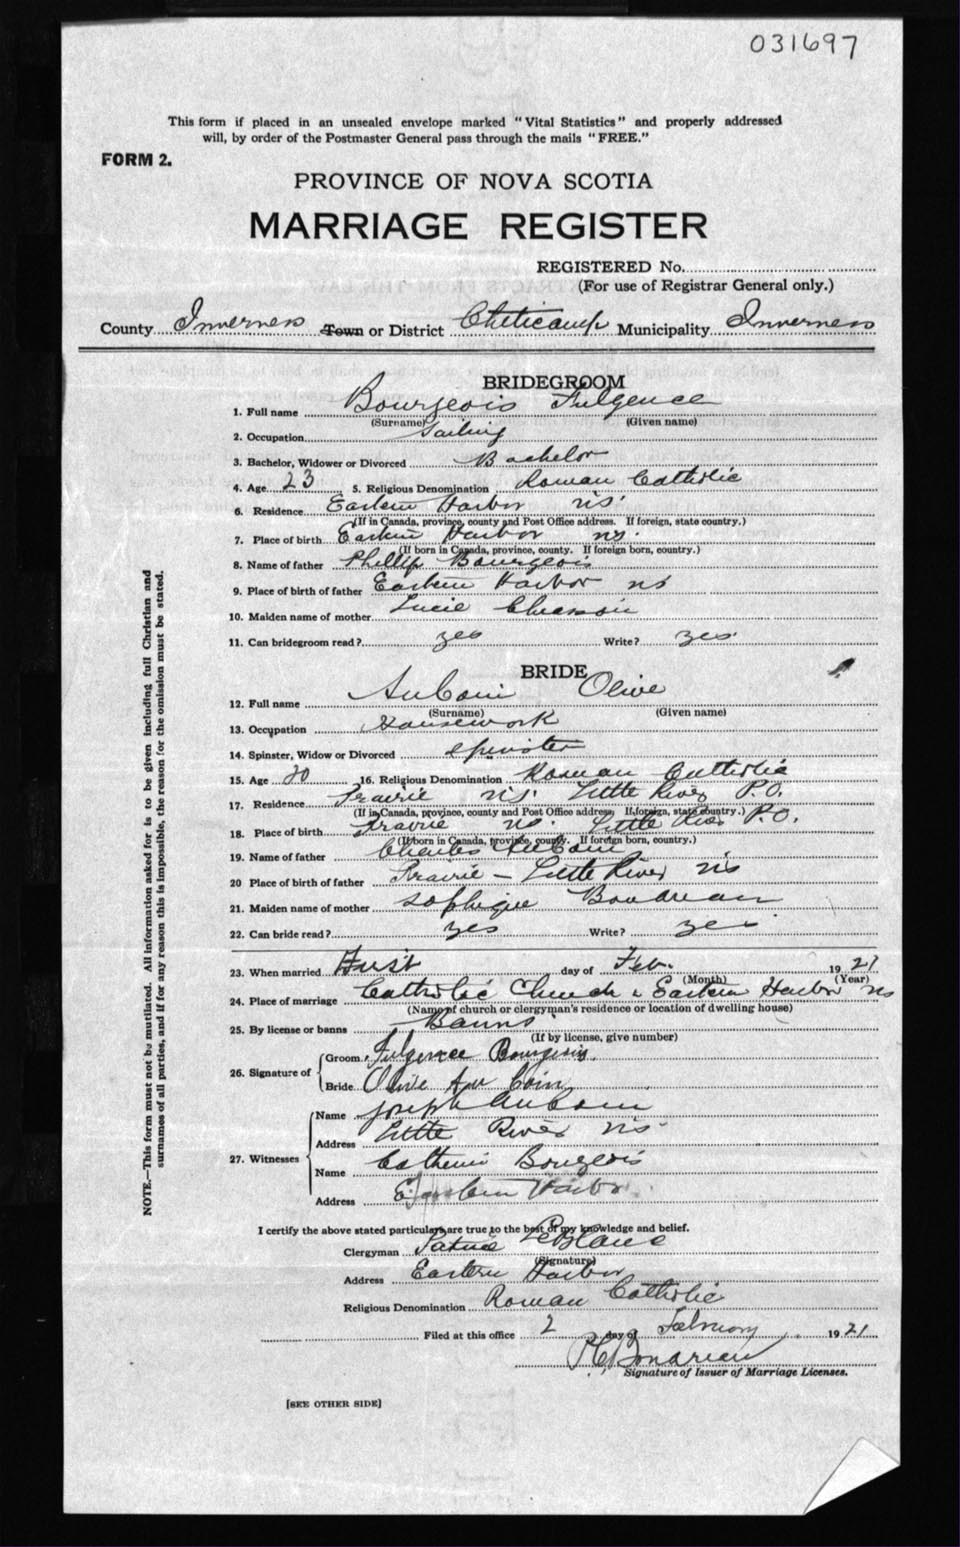 031697
This form if placed in an unsealed envelope marked "Vital Statistics" and properly addressed
will, by order of the Postmaster General pass through the mails "FREE."
FORM 2.
PROVINCE OF NOVA SCOTIA
MARRIAGE REGISTER
REGISTERED No.
(For use of Registrar General only.)
County Inverness Town or District Cheticamp Municipality Inverness
BRIDEGROOM
1. Full name Bourgeois Fulgence
(Surname) (Given name)
2. Occupation Sailing
3. Bachelor, Widower or Divorced Bachelor
4. Age 23 5. Religious Denomination Roman Catholic
6. Residence Eastern Harbor NS
(If in Canada, province, county and Post Office address. If foreign, state country.)
7. Place of birth Eastern Harbor NS.
(If born in Canada, province, county. If foreign born, country.)
8. Name of father Phillip Bourgeois
9. Place of birth of father Eastern Harbor NS
10. Maiden name of mother Lucie Chiasson
11. Can bridegroom read? yes Write? yes
BRIDE
12. Full name AuCoin Olive
(Surname) (Given name)
13. Occupation Housework
14. Spinster, Widow or Divorced Spinster
15. Age 20 16. Religious Denomination Roman Catholic
17. Residence Prairie NS. Little River P.O.
(If in Canada, province, county and Post Office address. If foreign, state country.)
18. Place of birth Prairie NS. Little River P.O.
(If born in Canada, province, county. If foreign born, country.)
19. Name of father Charles AuCoin
20 Place of birth of father Prairie – Little River NS
21. Maiden name of mother Sophique Boudreau
22. Can bride read? yes Write? yes
23. When married First day of Feb. 1921
(Month) (Year)
24. Place of marriage Catholic Church Eastern Harbor NS
(Name of church or clergyman's residence or location of dwelling house)
25. By license or banns Banns
(If by license, give number)
26. Signature of Groom Fulgence Bourgeois
Bride Olive Au Coin
27. Witnesses Name Joseph AuCoin
Address Little River NS
Name Catherin Bourgeois
Address Eastern Harbor
I certify the above stated particulars are true to the best of my knowledge and belief.
Clergyman Patrice LeBlanc
(Signature)
Address Eastern Harbor
Religious Denomination Roman Catholic
Filed at this office 2 day of February 1921
Signature of Issuer of Marriage Licenses.
[SEE OTHER SIDE]
NOTE.—This form must not be mutilated. All information asked for is to be given including full Christian and
surnames of all parties, and if for any reason this is impossible, the reason for the omission must be stated.